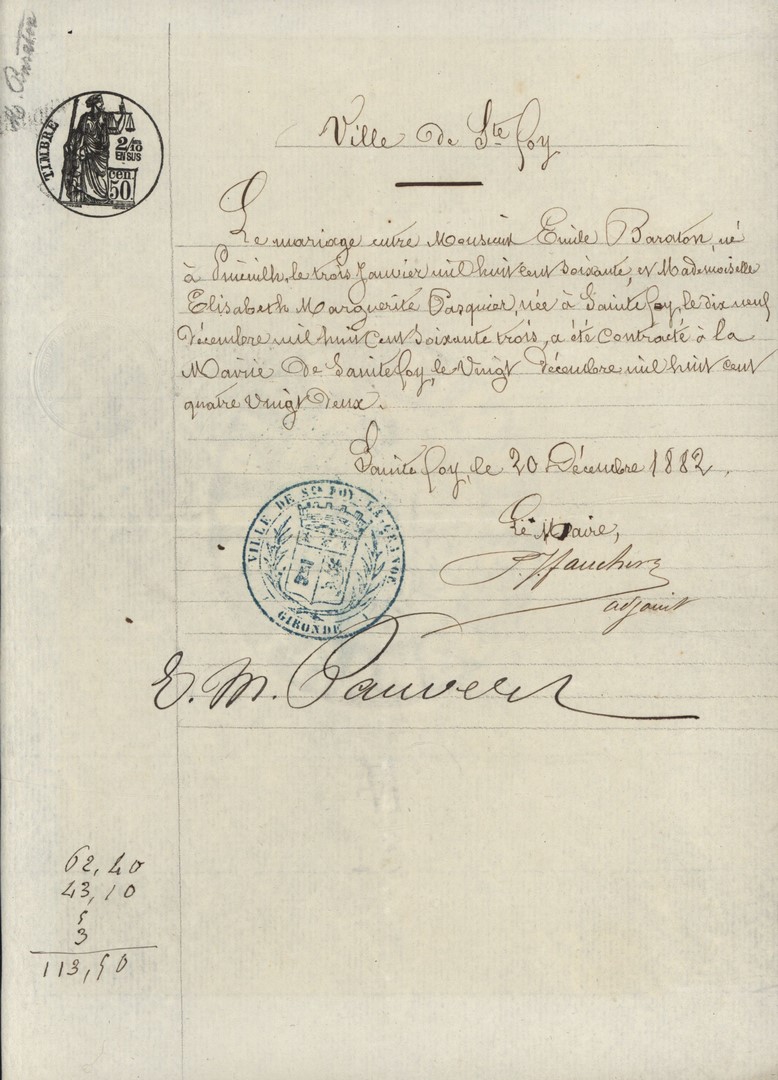 M. Baraton
TIMBRE
2/10
EN SUS
cen.
50
Ville de Ste foy
Le mariage entre Monsieur Emile Baraton, né
à Pineuilh, le trois Janvier mil huit cent soixante, et Mademoiselle
Elisabeth Marguerite Pasquier, née à Sainte foy, le dix neuf
décembre mil huit cent soixante trois, a été contracté à la
Mairie de Sainte foy, le Vingt décembre mil huit cent
quatre Vingt deux.
Sainte foy, le 20 Décembre 1882.
VILLE DE Ste FOY-LA-GRANDE
GIRONDE
Le Maire,
Faucher
adjoint
E. M. Pauvert
62,40
43,10
5
3
113,50